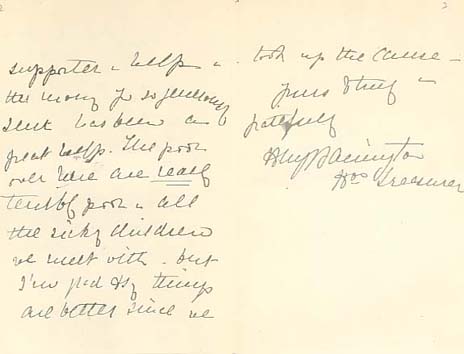 supporter & help &
the money you so generously
sent has been a
great help. The poor
over here are really
terribly poor & all
the sickly children
we meet with. but
I'm glad to say things
are better since we
took up the cause —
Yours truly &
gratefully
Barrington
Hon Treasurer